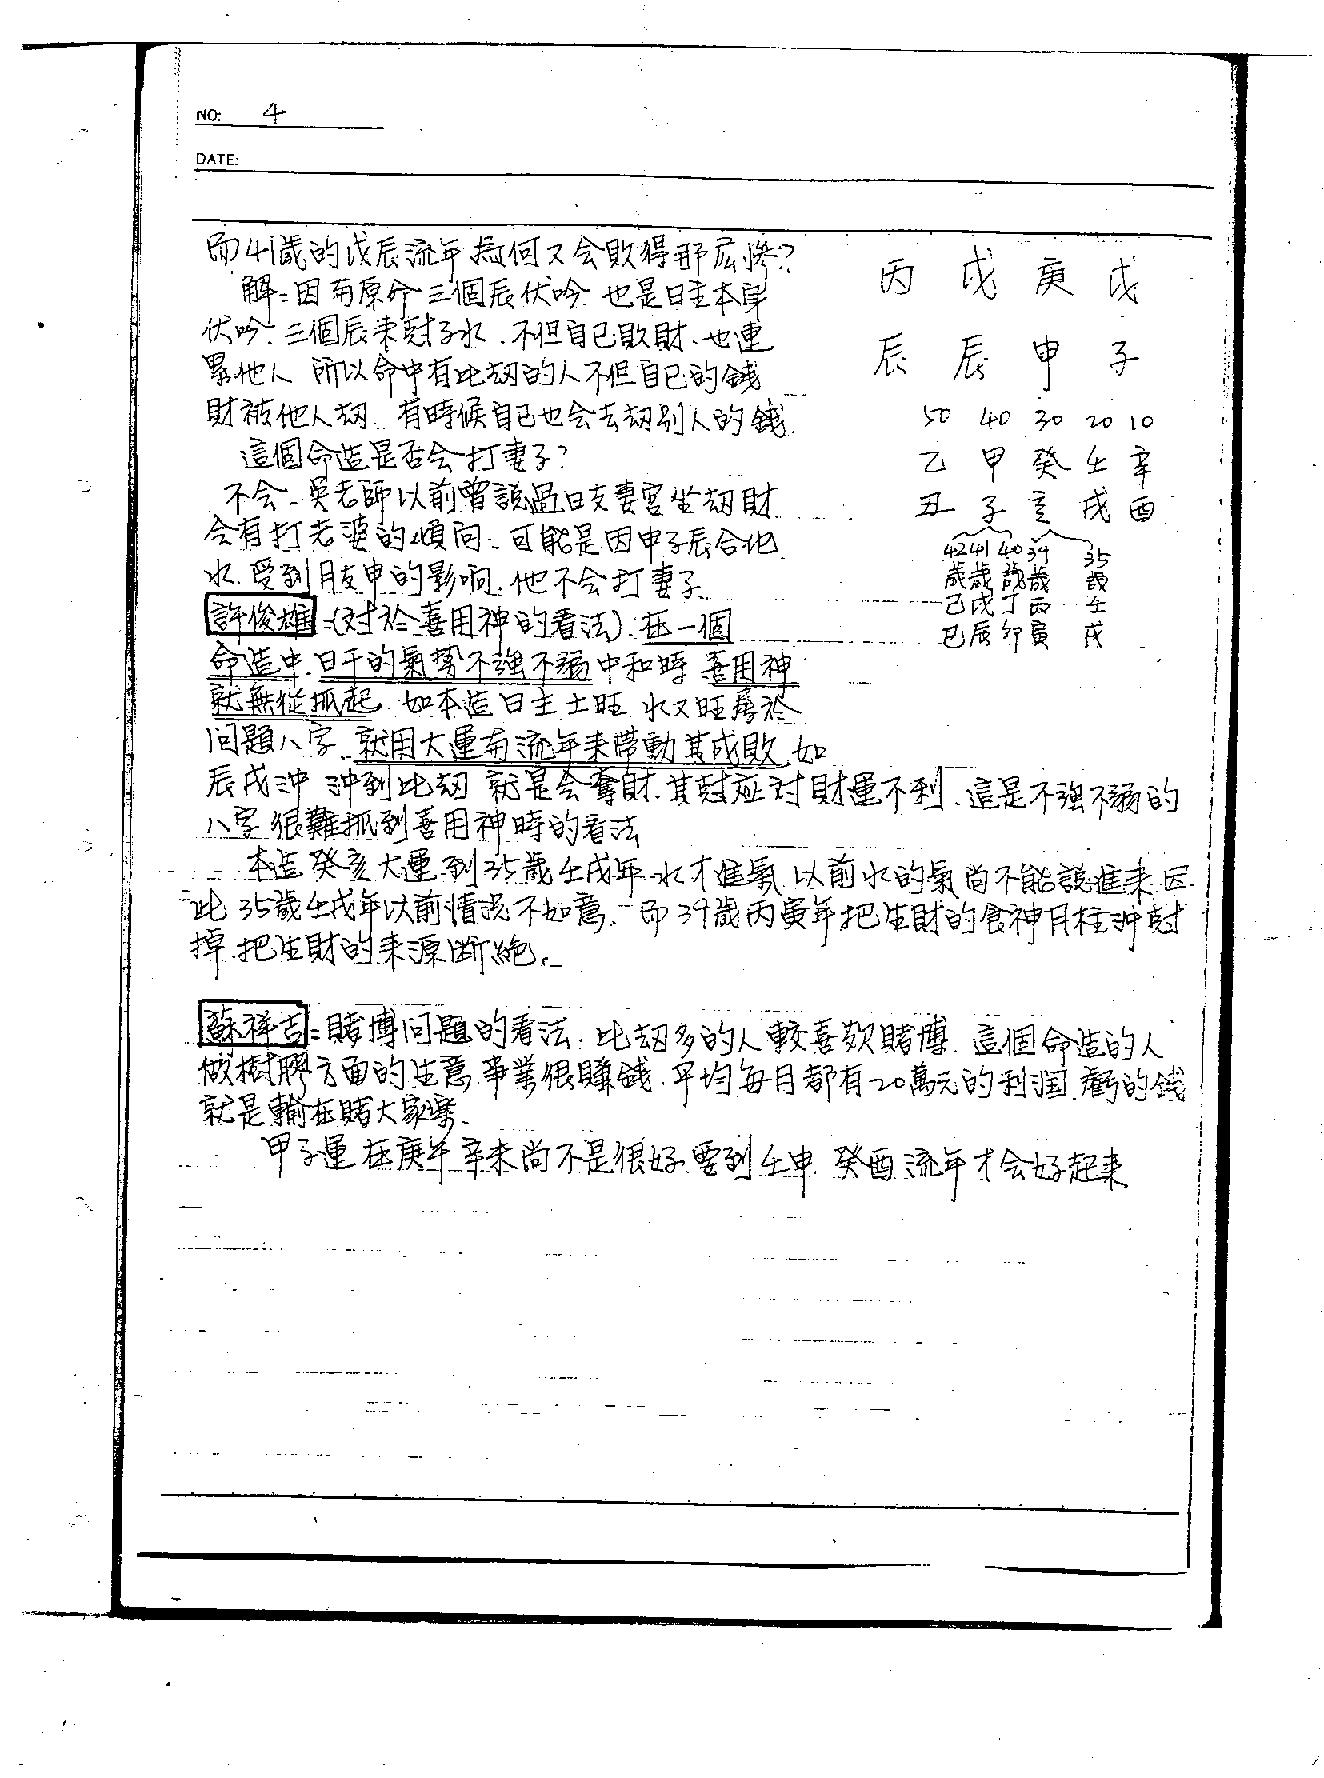 NO: 4
DATE:
而41歲的戊辰流年為何又会敗得那麼慘?
解:因為原命三個辰伏吟.也是日主本身
伏吟.三個辰來剋子水.不但自己敗財.也連
累他人 所以命中有比刼的人不但自己的錢
財被他人刼.有時候自己也会去刼别人的錢.
這個命造是否会打妻子?
不会.吳老師以前曾說過日支妻宮坐刼財
会有打老婆的傾向.可能是因申子辰合化
水.受到月支申的影响.他不会打妻子.
許俊雄:(対於喜用神的看法).在一個
命造中.日干的氣勢不強不弱中和時 喜用神
就無從抓起.如本造日主土旺 水又旺屬於
问題八字 就用大運与流年来帶動其成敗.如
辰戌沖 沖到比刼 就是会奪財.其尅应対財運不利.這是不強不弱的
八字很難抓到喜用神時的看法
本造癸亥大運到35歲壬戌年水才進氣.以前水的氣尚不能說進来.因
此35歲壬戌年以前情況不如意.而39歲丙寅年把生財的食神月柱沖尅
掉.把生財的来源断絶.
蘇祥吉:賭博问題的看法.比刼多的人較喜欢賭博.這個命造的人
做樹膠方面的生意.事業很賺錢.平均每月都有20萬元的利润.虧的錢
就是輸在賭大家樂.
甲子運在庚午辛未尚不是很好.要到壬申.癸酉流年才会好起来
丙 戊 庚 戊
辰 辰 申 子
50 40 30 20 10
乙 甲 癸 壬 辛
丑 子 亥 戌 酉
42 41 40 39 35
歲 歲 歲 歲 歲
己 戊 丁 丙 壬
巳 辰 卯 寅 戌